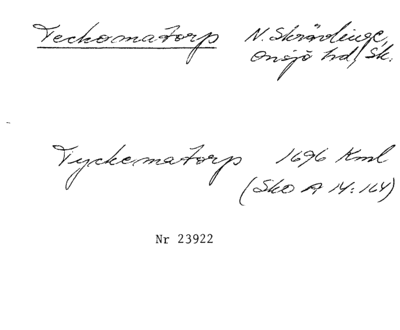 Teckomatorp N. Skrävlinge,
Onsjö hd, Sk.
Tyckematorp 1696 Kml
(Sko A 14:164)
Nr 23922